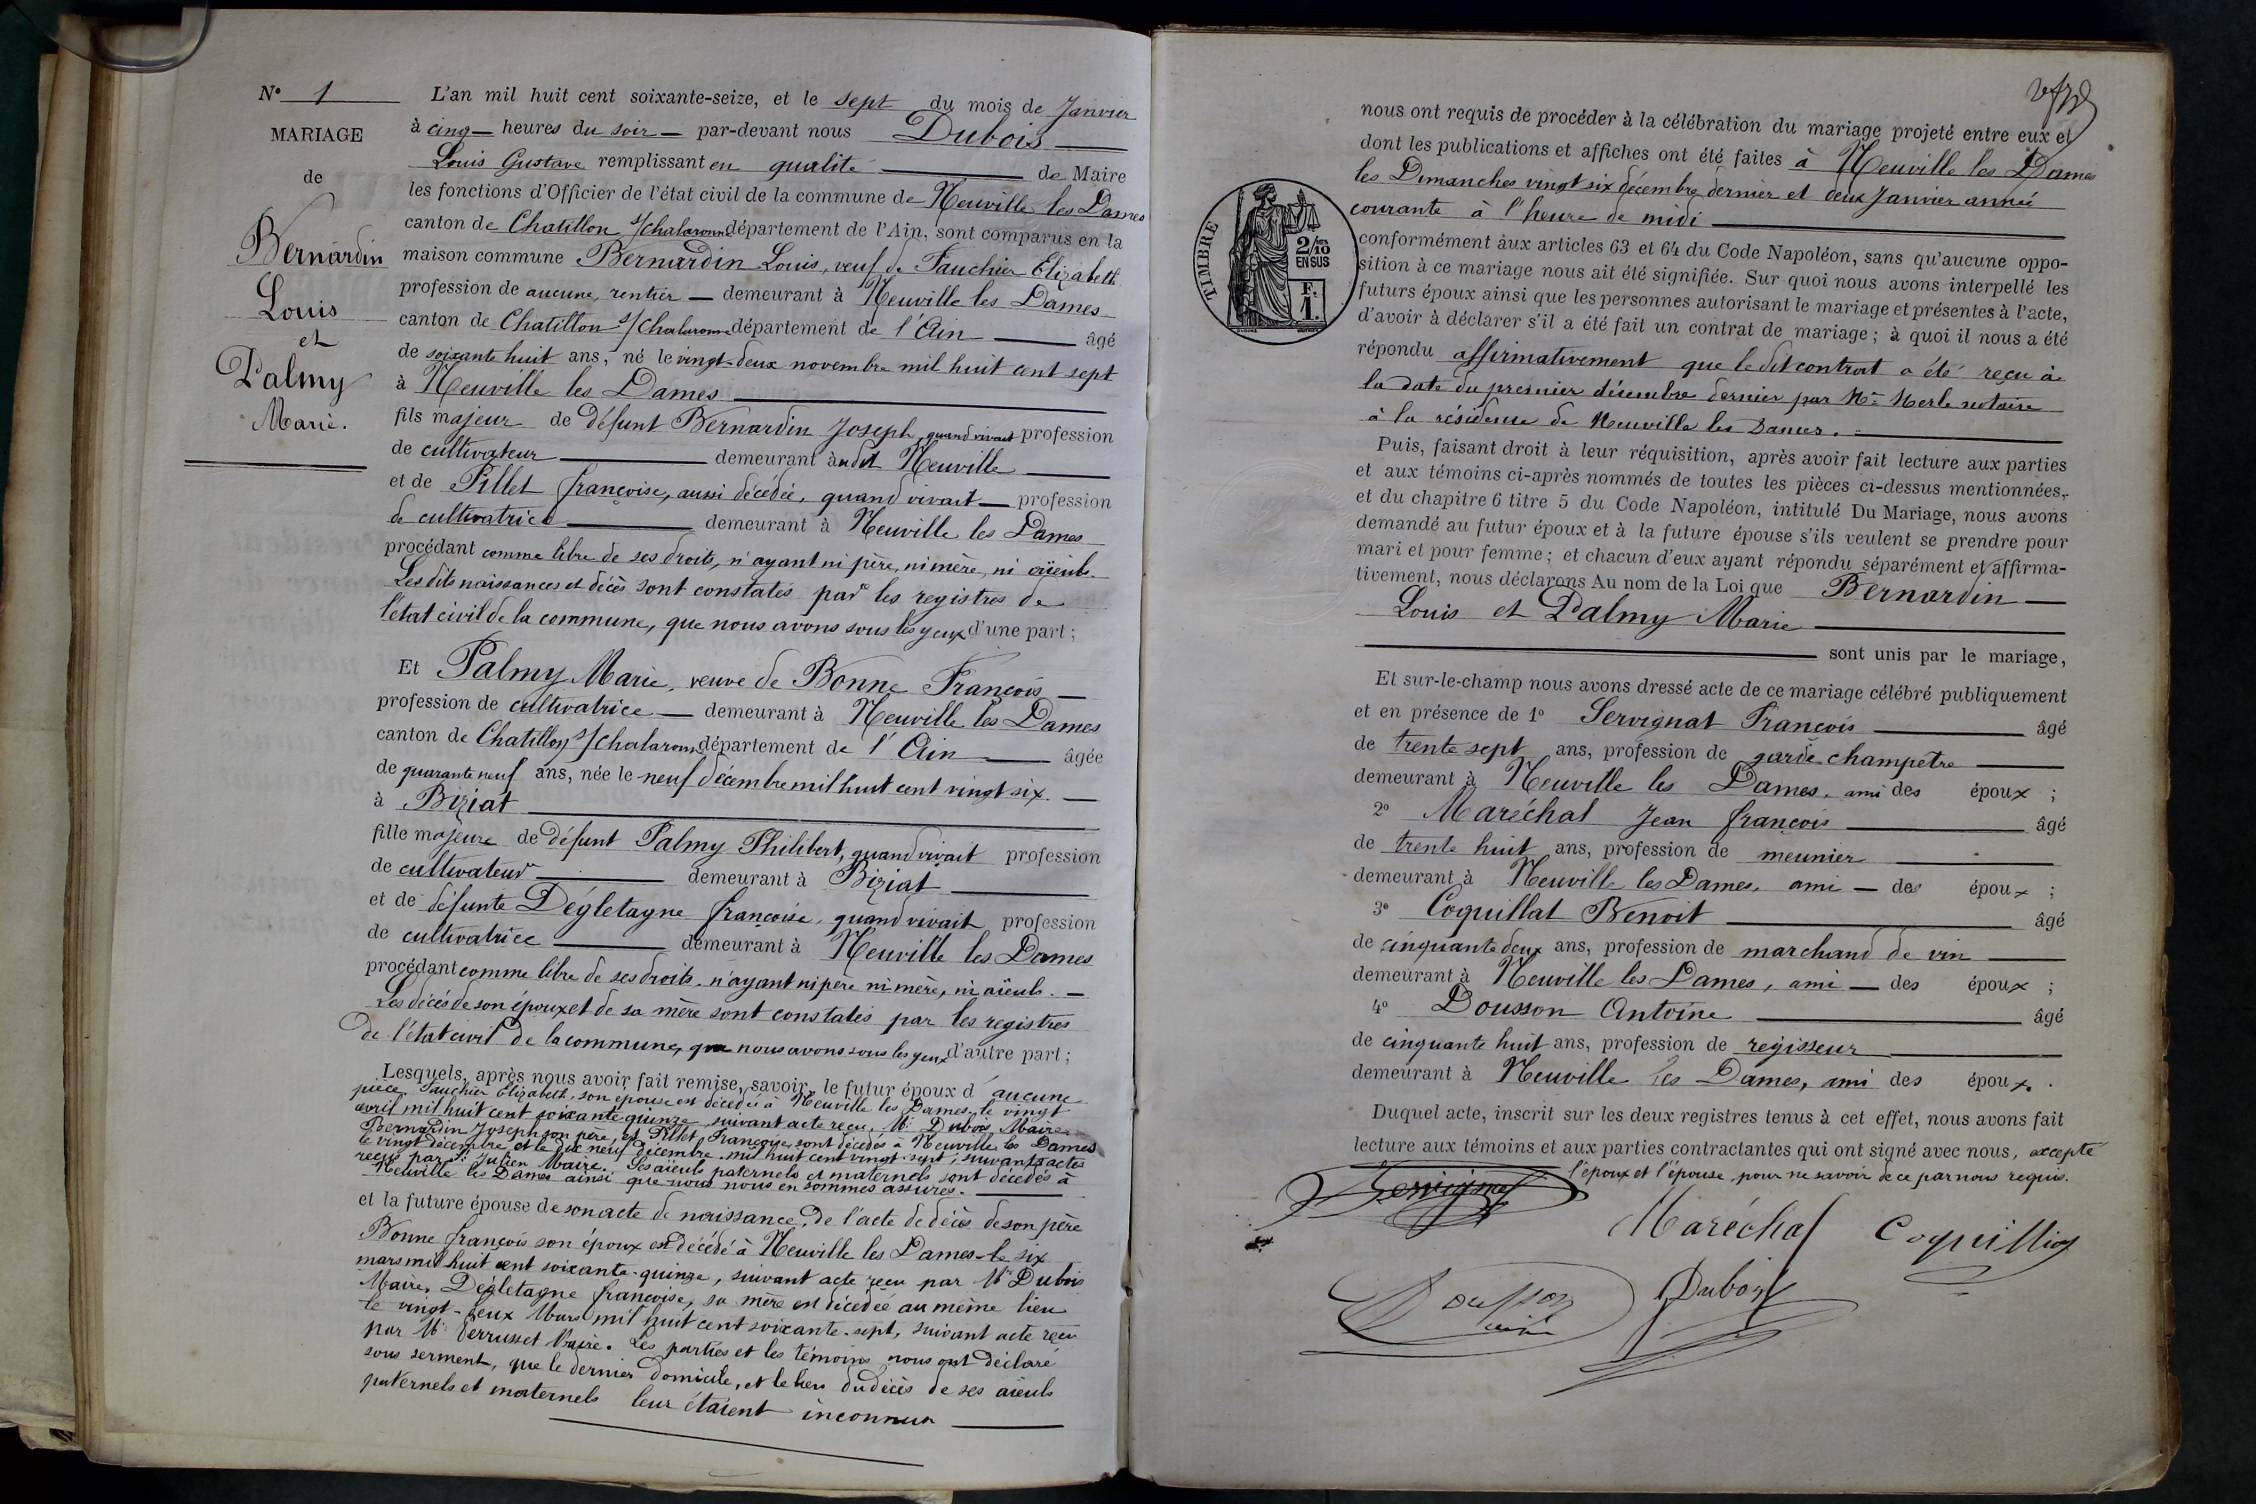 N° 1
MARIAGE
de
Bernardin
Louis
et
Palmy
Marie.
L'an mil huit cent soixante-seize, et le sept du mois de Janvier
à cinq heures du soir par-devant nous Dubois
Louis Gustave remplissant en qualité de Maire
les fonctions d'Officier de l'état civil de la commune de Neuville les Dames
canton de Chatillon s/Chalaronne département de l'Ain, sont comparus en la
maison commune Bernardin Louis, veuf de Fauchier Elizabeth
profession de aucune, rentier demeurant à Neuville les Dames
canton de Chatillon s/Chalaronne département de l'Ain âgé
de soixante huit ans, né le vingt-deux novembre mil huit cent sept
à Neuville les Dames
fils majeur de défunt Bernardin Joseph, quand vivait profession
de cultivateur demeurant audit Neuville
et de Pillet françoise, aussi décédée, quand vivait profession
de cultivatrice demeurant à Neuville les Dames
procédant comme libre de ses droits, n'ayant ni père, ni mère, ni aïeuls.
Les dits naissances et décès sont constatés par les registres de
l'état civil de la commune, que nous avons sous les yeux d'une part;
Et Palmy Marie, veuve de Bonne François
profession de cultivatrice demeurant à Neuville les Dames
canton de Chatillon s/Chalaronne département de l'Ain âgée
de quarante neuf ans, née le neuf décembre mil huit cent vingt six.
à Biziat
fille majeure de défunt Palmy Philibert, quand vivait profession
de cultivateur demeurant à Biziat
et de défunte Dégletagne françoise, quand vivait profession
de cultivatrice demeurant à Neuville les Dames
procédant comme libre de ses droits, n'ayant ni père ni mère, ni aïeuls.
Les décès de son époux et de sa mère sont constatés par les registres
de l'état civil de la commune, que nous avons sous les yeux d'autre part;
Lesquels, après nous avoir fait remise, savoir, le futur époux d'aucune
pièce. Fauchier Elizabeth, son épouse est décédée à Neuville les Dames, le vingt
avril mil huit cent soixante quinze, suivant acte reçu, Mr Dubois, Maire.
Bernardin Joseph son père, et Pillet Françoise, sont décédés à Neuville les Dames
le vingt décembre et le dix neuf décembre mil huit cent vingt-sept; suivant actes
reçus par St Julien Maire. Ses aïeuls paternels et maternels sont décédés à
Neuville les Dames ainsi que nous nous en sommes assurés.
et la future épouse de son acte de naissance, de l'acte de décès de son père
Bonne françois son époux est décédé à Neuville les Dames le six
mars mil huit cent soixante-quinze, suivant acte reçu par Mr Dubois
Maire. Dégletagne françoise, sa mère est décédée au même lieu
le vingt-deux Mars mil huit cent soixante-sept, suivant acte reçu
par Mr Verrusset Maire. Les parties et les témoins nous ont déclaré
sous serment, que le dernier domicile, et le lieu du décès de ses aïeuls
paternels et maternels leur étaient inconnus
nous ont requis de procéder à la célébration du mariage projeté entre eux et
dont les publications et affiches ont été faites à Neuville les Dames
les Dimanches vingt six décembre dernier et deux Janvier année
courante à l'heure de midi
TIMBRE
2/10
EN SUS
F.
1.
conformément aux articles 63 et 64 du Code Napoléon, sans qu'aucune oppo-
sition à ce mariage nous ait été signifiée. Sur quoi nous avons interpellé les
futurs époux ainsi que les personnes autorisant le mariage et présentes à l'acte,
d'avoir à déclarer s'il a été fait un contrat de mariage; à quoi il nous a été
répondu affirmativement que le dit contrat a été reçu à
la date du premier décembre dernier par Me Merle notaire
à la résidence de Neuville les Dames.
Puis, faisant droit à leur réquisition, après avoir fait lecture aux parties
et aux témoins ci-après nommés de toutes les pièces ci-dessus mentionnées,
et du chapitre 6 titre 5 du Code Napoléon, intitulé Du Mariage, nous avons
demandé au futur époux et à la future épouse s'ils veulent se prendre pour
mari et pour femme; et chacun d'eux ayant répondu séparément et affirma-
tivement, nous déclarons Au nom de la Loi que Bernardin
Louis et Palmy Marie
sont unis par le mariage,
Et sur-le-champ nous avons dressé acte de ce mariage célébré publiquement
et en présence de 1° Servignat François âgé
de trente sept ans, profession de garde champetre
demeurant à Neuville les Dames, ami des époux;
2° Maréchal Jean françois âgé
de trente huit ans, profession de meunier
demeurant à Neuville les Dames, ami des époux;
3° Coquillat Benoit âgé
de cinquante deux ans, profession de marchand de vin
demeurant à Neuville les Dames, ami des époux;
4° Dousson Antoine âgé
de cinquante huit ans, profession de regisseur
demeurant à Neuville les Dames, ami des époux.
Duquel acte, inscrit sur les deux registres tenus à cet effet, nous avons fait
lecture aux témoins et aux parties contractantes qui ont signé avec nous, excepté
l'époux et l'épouse, pour ne savoir de ce par nous requis.
Servignat
Maréchal Coquillat
Dousson Dubois